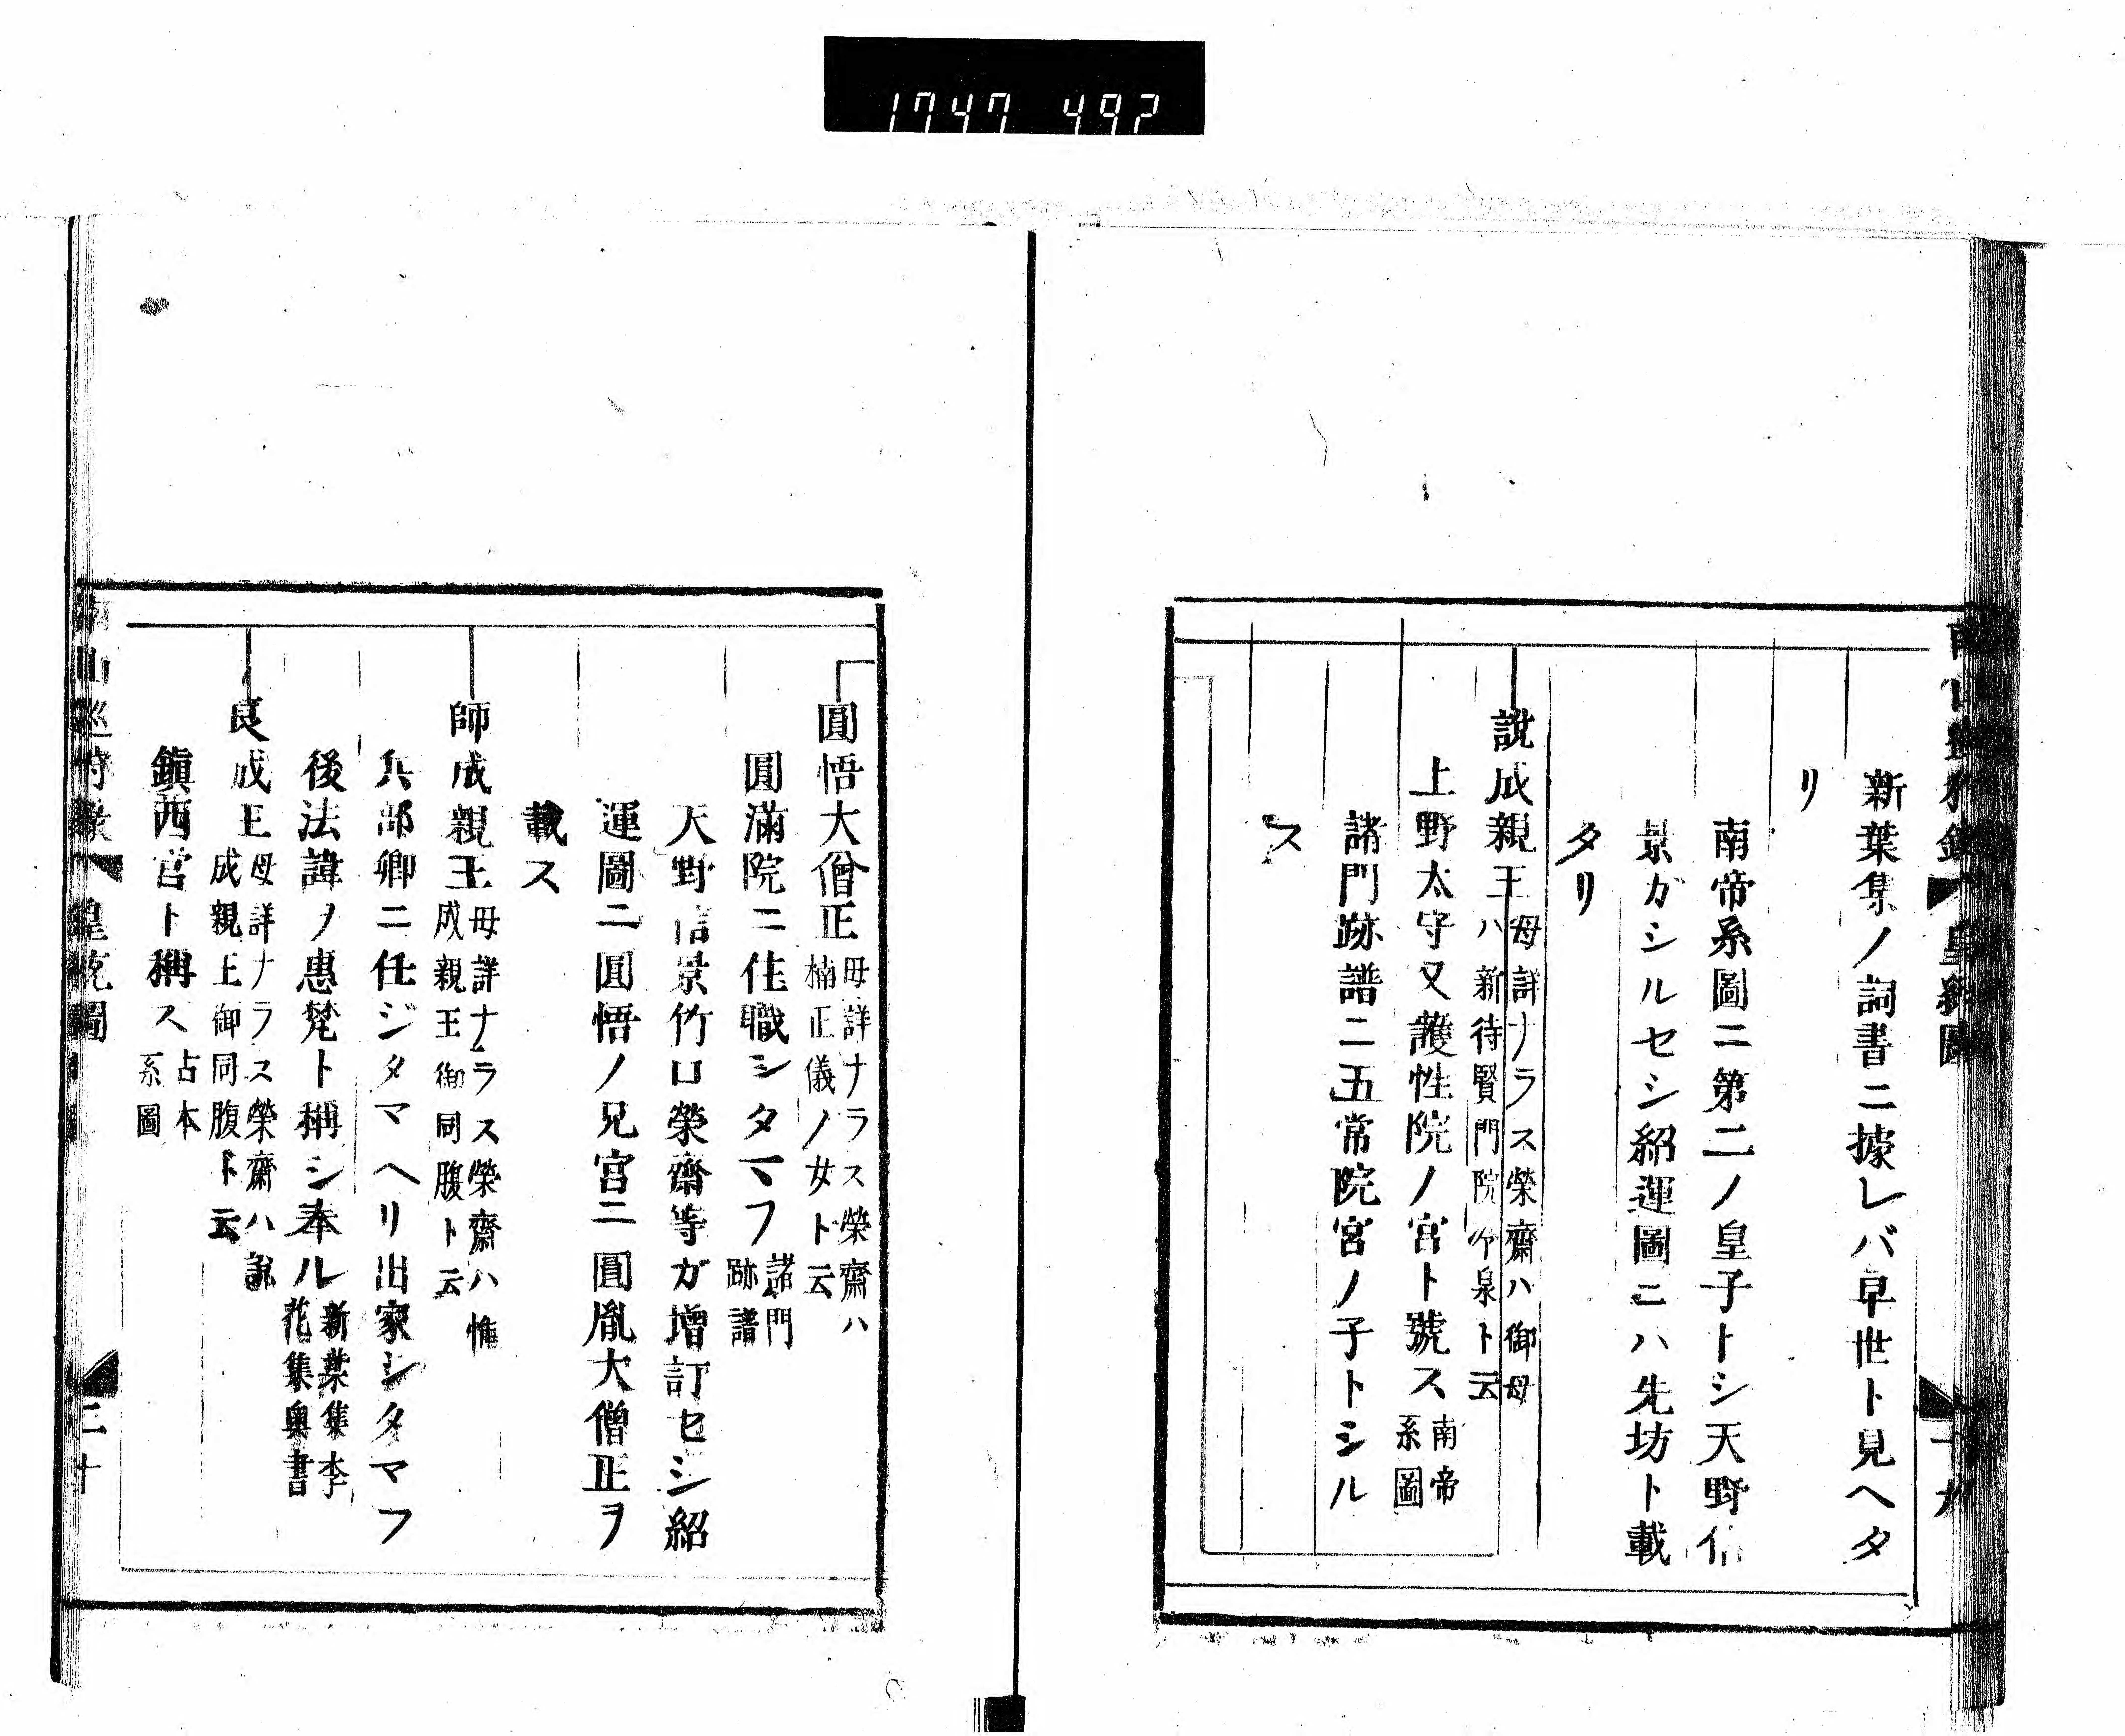 1747 492
新葉集ノ詞書ニ據レバ早世ト見ヘタ
リ
南帝系圖ニ第二ノ皇子トシ天野信
景ガシルセシ紹運圖ニハ先坊ト載
タリ
説成親王
母詳ナラス榮齋ハ御母
ハ新待賢門院冷泉ト云
上野太守又護性院ノ宮ト號ス
南帝
系圖
諸門跡譜ニ五常院宮ノ子トシル
ス
圓悟大僧正
母詳ナラス榮齋ハ
楠正儀ノ女ト云
圓滿院ニ住職シタマフ
諸門
跡譜
天野信景竹口榮齋等ガ增訂セシ紹
運圖ニ圓悟ノ兄宮ニ圓胤大僧正ヲ
載ス
師成親王
母詳ナラス榮齋ハ惟
成親王御同腹ト云
兵部卿ニ任ジタマヘリ出家シタマフ
後法諱ノ惠梵ト稱シ奉ル
新葉集李
花集奥書
良成王
母詳ナラス榮齋ハ説
成親王御同腹ト云
鎭西宮ト稱ス
古本
系圖
南山巡狩録 皇統圖 二十